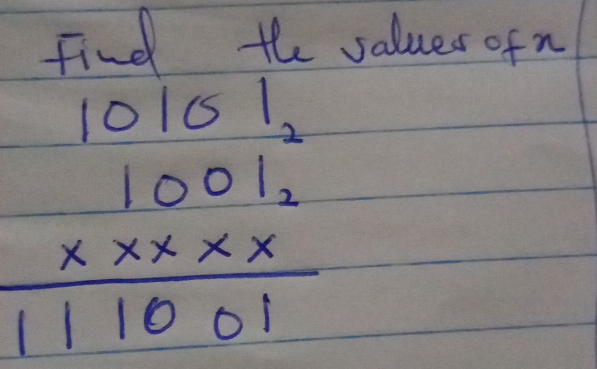 Find the values of x
10101₂
1001₂
x x x x x
111001